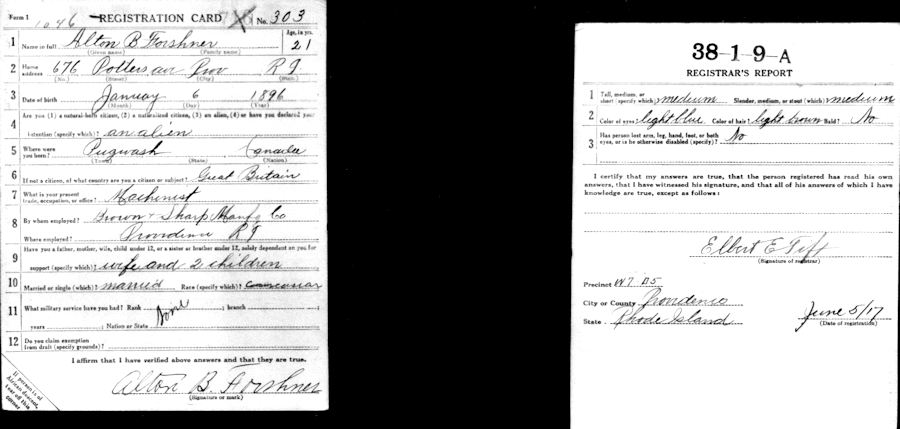 Form 1 1046 REGISTRATION CARD No. 303
1 Name in full Alton B Forshner Age, in yrs. 21
(Given name) (Family name)
2 Home address 676 Potters av Prov R I
(No.) (Street) (City) (State)
3 Date of birth January 6 1896
(Month) (Day) (Year)
4 Are you (1) a natural-born citizen, (2) a naturalized citizen, (3) an alien, (4) or have you declared your
intention (specify which)? an alien
5 Where were you born? Pugwash Canada
(Town) (State) (Nation)
6 If not a citizen, of what country are you a citizen or subject? Great Britain
7 What is your present trade, occupation, or office? Machinist
8 By whom employed? Brown & Sharp Manfg Co
Where employed? Providence R I
9 Have you a father, mother, wife, child under 12, or a sister or brother under 12, solely dependent on you for
support (specify which)? wife and 2 children
10 Married or single (which)? married Race (specify which)? Caucasian
11 What military service have you had? Rank None ; branch
years ; Nation or State
12 Do you claim exemption
from draft (specify grounds)?
I affirm that I have verified above answers and that they are true.
Alton B. Forshner
(Signature or mark)
If person is of African descent, tear off this corner
38-1-9-A
REGISTRAR'S REPORT
1 Tall, medium, or short (specify which)? medium Slender, medium, or stout (which)? medium
2 Color of eyes? light blue Color of hair? light brown Bald? No
3 Has person lost arm, leg, hand, foot, or both
eyes, or is he otherwise disabled (specify)? No
I certify that my answers are true, that the person registered has read his own
answers, that I have witnessed his signature, and that all of his answers of which I have
knowledge are true, except as follows:
Elbert E Tift
(Signature of registrar)
Precinct W7 D5
City or County Providence
State Rhode Island June 5/17
(Date of registration)